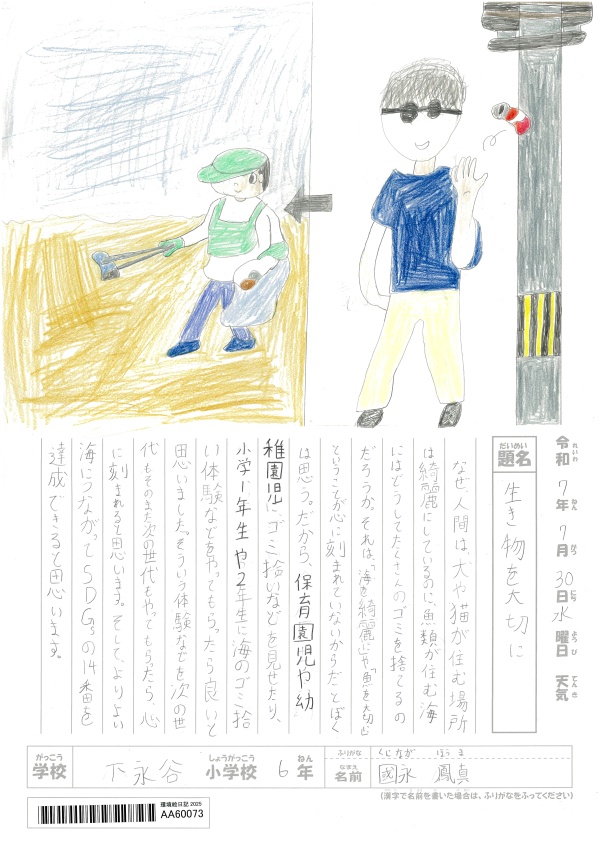 令和7年7月30日水曜日 天気
れいわ ねん がつ にち ようび てんき
だいめい
題名 生き物を大切に
なぜ、人間は、犬や猫が住む場所
は綺麗にしているのに、魚類が住む海
にはどうしてたくさんのゴミを捨てるの
だろうか。それは、「海を綺麗に」や「魚を大切に」
ということが心に刻まれていないからだとぼく
は思う。だから、保育園児や幼
稚園児に、ゴミ拾いなどを見せたり、
小学1年生や2年生に海のゴミ拾
い体験などをやってもらったら良いと
思いました。そういう体験などを次の世
代もそのまた次の世代もやってもらたら、心
に刻まれると思います。そして、よりよい
海につながってSDGsの14番を
達成できると思います。
がっこう しょうがっこう ねん
学校 下永谷 小学校 6年
ふりがな くになが ほうま
なまえ
名前 國永 鳳真
(漢字で名前を書いた場合は、ふりがなをふってください)
環境絵日記 2025
AA60073